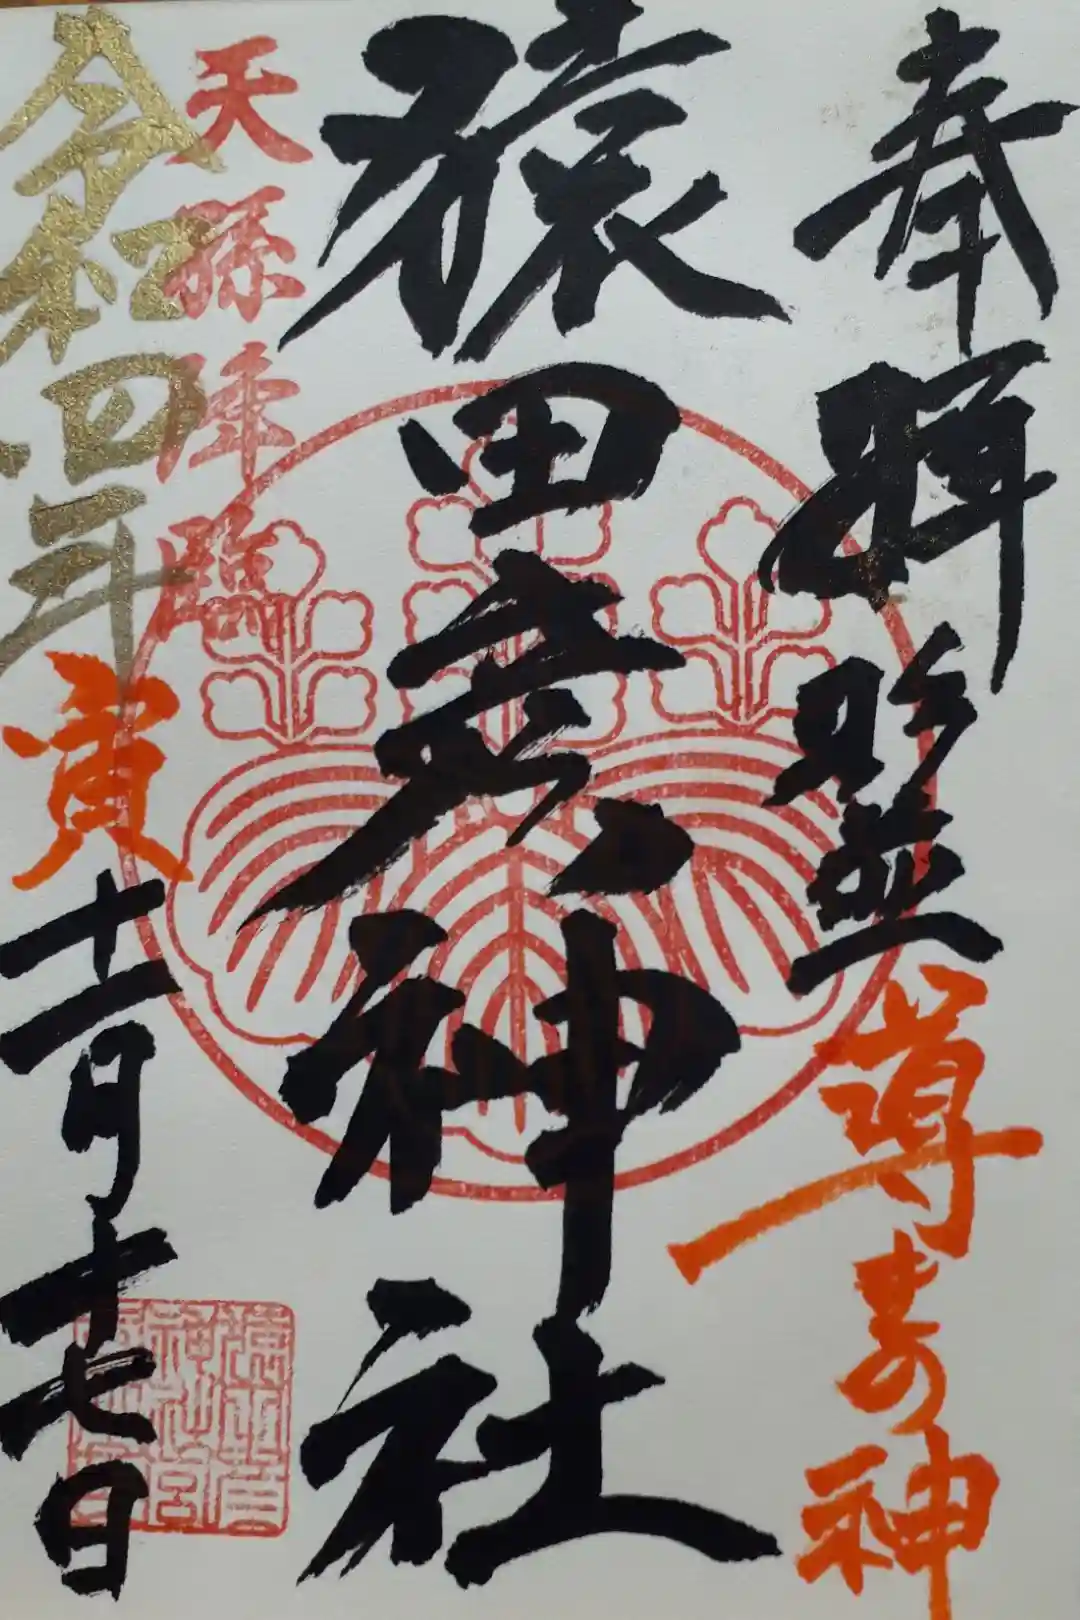 奉拝
導き の神
猿田彦神社
天孫降臨
令和四年
寅
十一月十七日